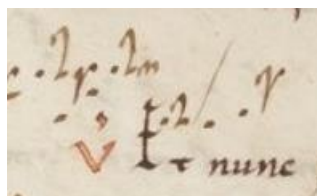 V Et nunc